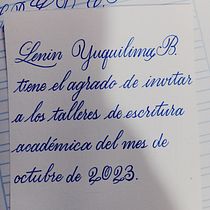 Lenin Yuquilima B.
tiene el agrado de invitar
a los talleres de escritura
académica del mes de
octubre de 2023.